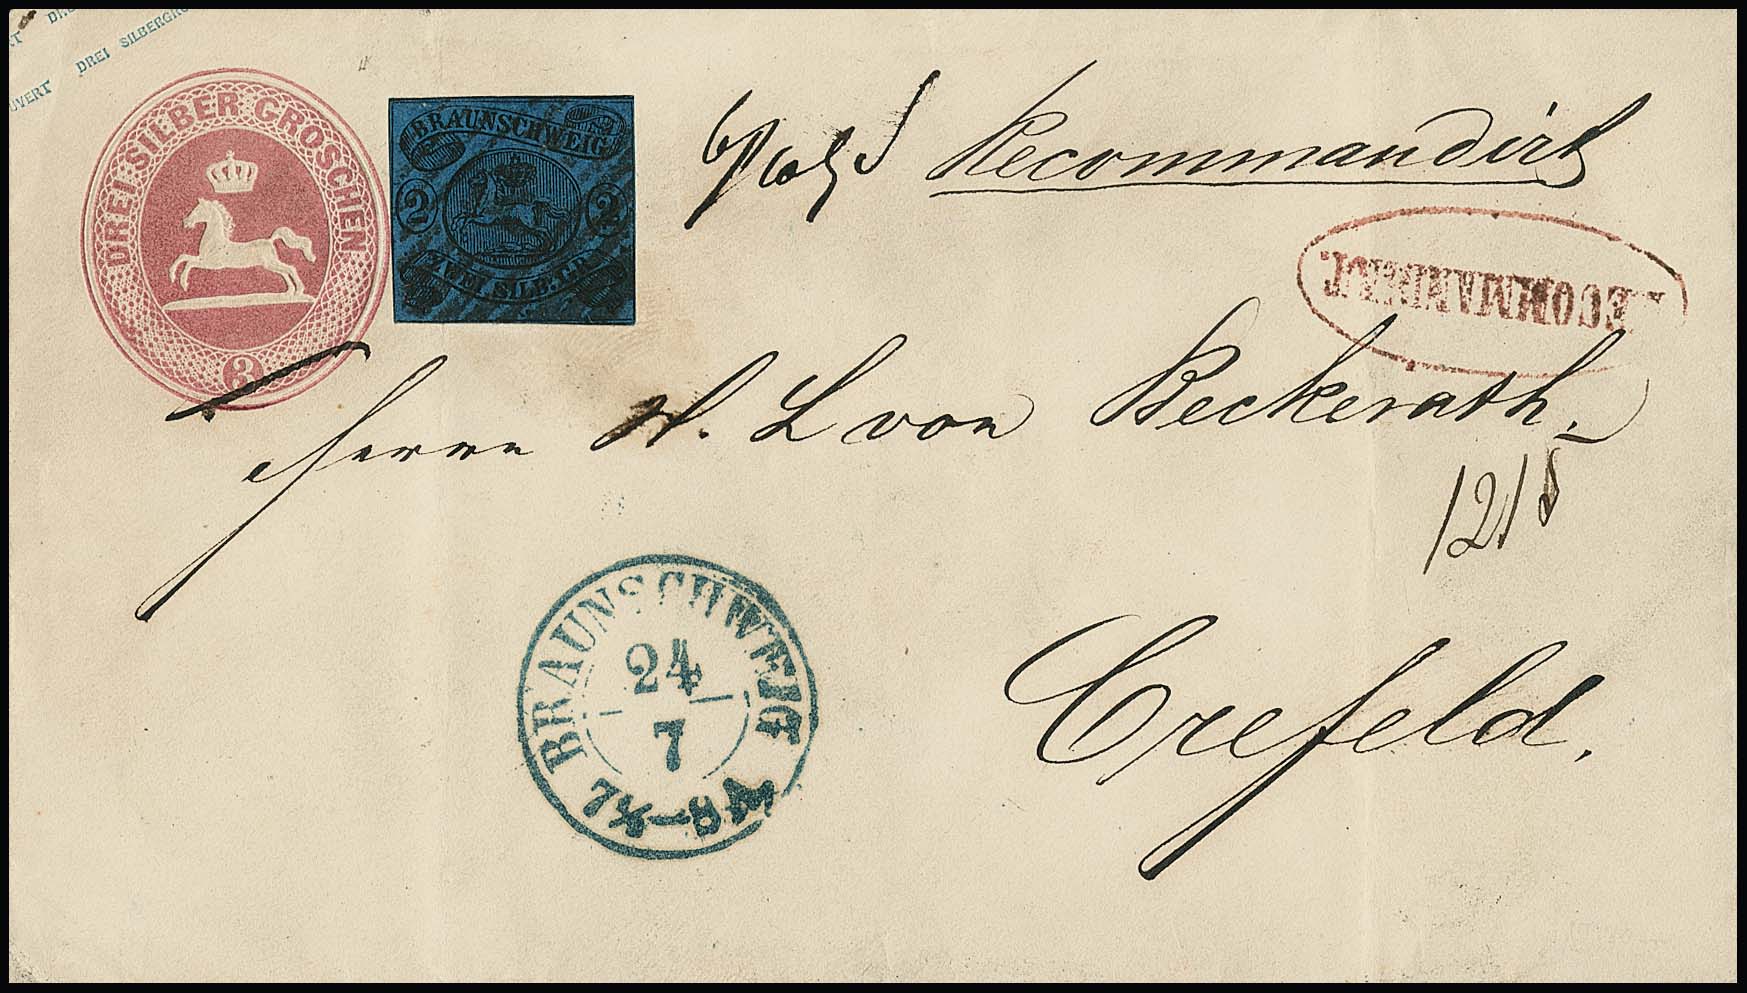 DREI SILBERGRO
UVERT DREI SILBERGRO
DREI SILBER GROSCHEN
3
BRAUNSCHWEIG
2 2
ZWEI SILB.GR.
Recommandirt
RECOMMANDIRT.
Herrn W. L von Beckerath.
1218
BRAUNSCHWEIG
24
7
7½-8
Crefeld.